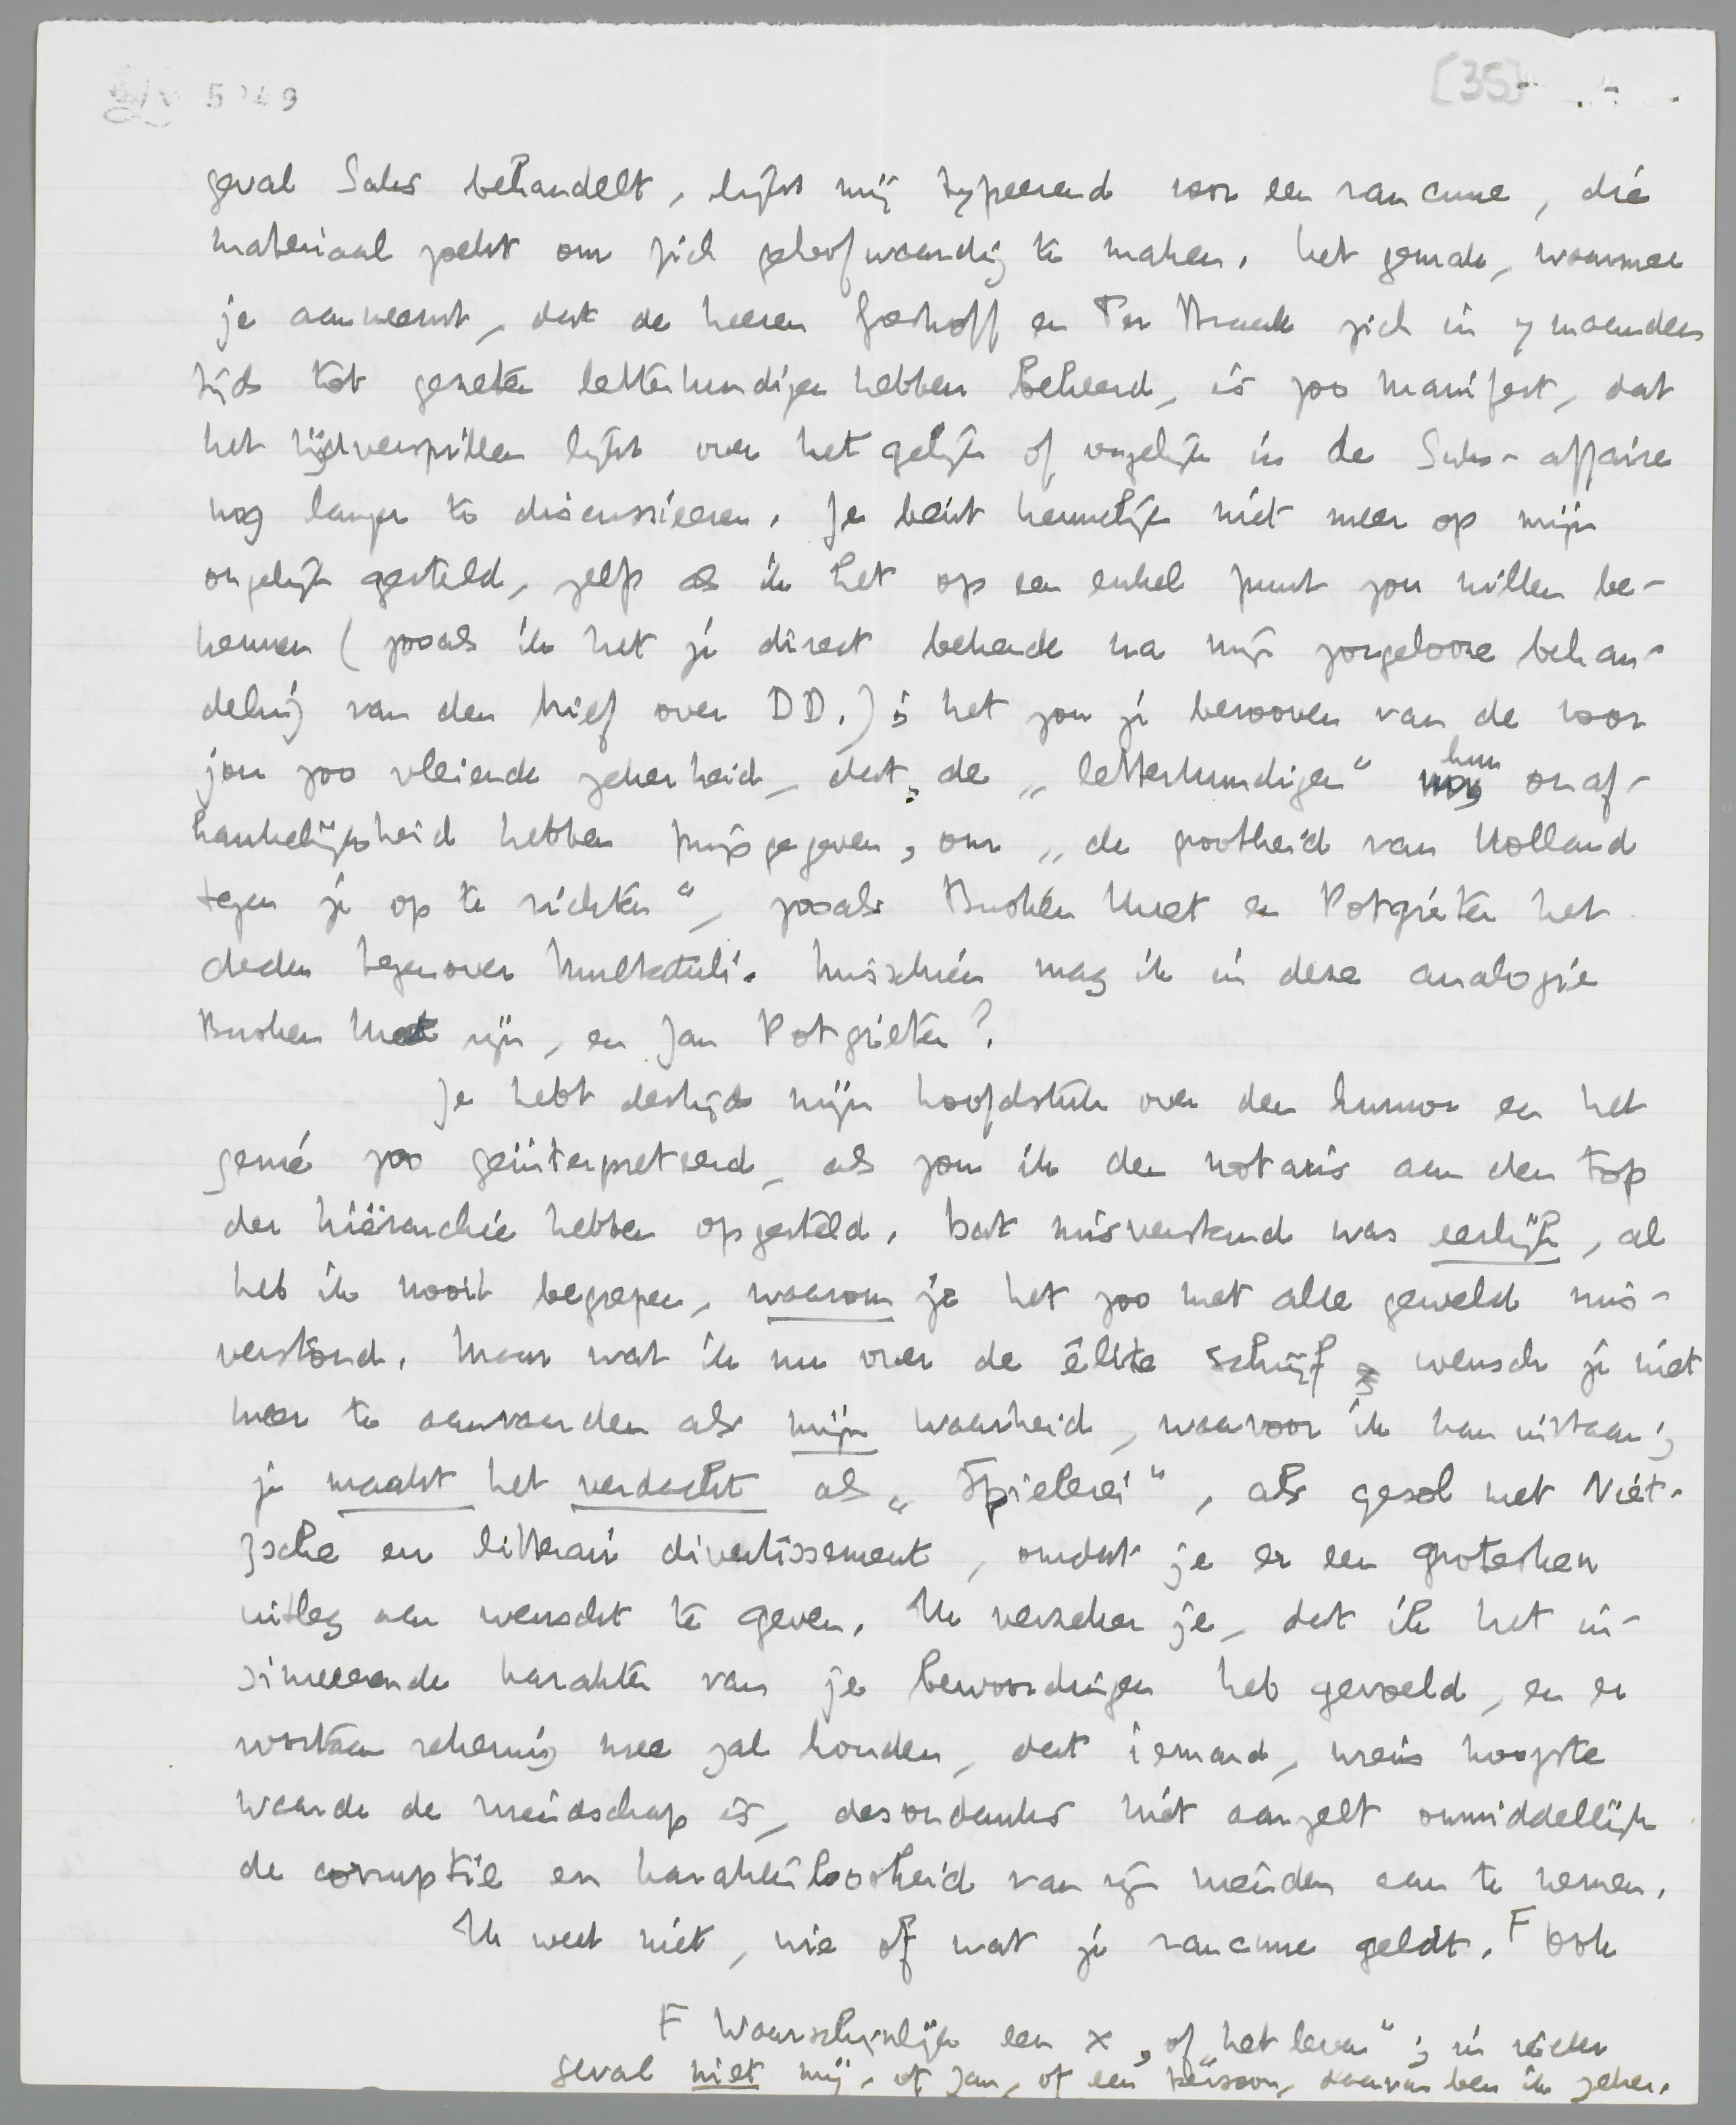 5249
[35]
geval Saks behandelt, lijkt mij typeerend voor een rancune, die
materiaal zoekt om zich geloofwaardig te maken. Het gemak, waarmee
je aanneemt, dat de heeren Greshoff en Ter Braak zich in 7 maanden
tijds tot gezeten letterkundigen hebben bekeerd, is zoo manifest, dat
het tijdverspillen lijkt over het gelijk of ongelijk in de Saks-affaire
nog langer te discussieeren. Je bent kennelijk niet meer op mijn
ongelijk gesteld, zelfs als ik het op een enkel punt zou willen be-
kennen (zooals ik het je direct bekende na mijn zorgelooze behan-
deling van den brief over DD.); het zou je berooven van de voor
jou zoo vleiende zekerheid, dat de „letterkundigen" hun onaf-
hankelijkheid hebben prijsgegeven, om „de grootheid van Holland
tegen je op te richten", zooals Busken Huet en Potgieter het
deden tegenover Multatuli. Misschien mag ik in deze analogie
Busken Huet zijn, en Jan Potgieter?
Je hebt destijds mijn hoofdstuk over den humor en het
genie zoo geïnterpreteerd, als zou ik den notaris aan den top
der hiërarchie hebben opgesteld. Dat misverstand was eerlijk, al
heb ik nooit begrepen, waarom je het zoo met alle geweld mis-
verstond. Maar wat ik nu over de élite schrijf, wensch je niet
meer te aanvaarden als mijn waarheid, waarvoor ik kan instaan;
je maakt het verdacht als „Spielerei", als gesol met Niet-
zsche en litterair divertissement, omdat je er een grotesken
uitleg aan wenscht te geven. Ik verzeker je, dat ik het in-
sinueerende karakter van je bewoordingen heb gevoeld, en er
voortaan rekening mee zal houden, dat iemand, wiens hoogste
waarde de vriendschap is, desondanks niet aarzelt onmiddellijk
de corruptie en karakterloosheid van zijn vrienden aan te nemen.
Ik weet niet, wie of wat je rancune geldt. F Ook
F Waarschijnlijk een x, of „het leven"; in ieder
geval niet mij, of Jan, of een persoon, daarvan ben ik zeker.